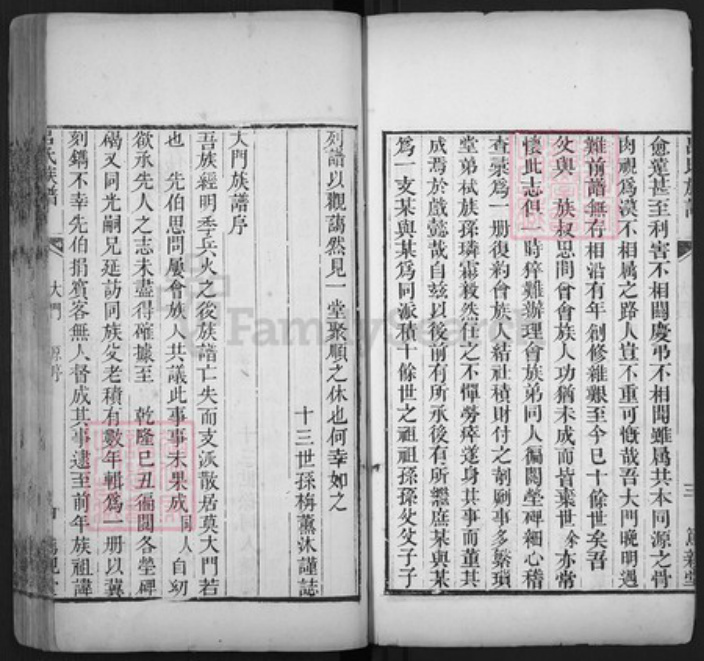 愈遠甚至利害不相關慶弔不相聞雖屬共本同源之骨
肉視爲漠不相属之路人豈不重可慨哉吾大門晚明遇
難前譜無存相沿有年創修維艱至今已十餘世矣吾
父與 族叔思問曾會族人功猶未成而皆棄世余亦常
懷此志但一時猝難辦理會族弟同人徧閱塋碑細心稽
查彙爲一册復約會族人結社積財付之剞劂事多繁瑣
堂弟栻族孫璘霱毅然任之不憚勞瘁遂身其事而董其
成焉於戲懿哉自兹以後前有所承後有所繼庶某與某
爲一支某與某爲同派積十餘世之祖祖孫孫父父子子
三
列譜以觀藹然見一堂聚順之休也何幸如之
十三世孫梅薰沐謹誌
大門族譜序
吾族經明季兵火之後族譜亡失而支派散居莫大門若
也 先伯思問屢會族人共議此事事未果成同人自幼
欲承先人之志未盡得確據至 乾隆己丑徧閱各塋碑
碣又同光嗣兄延訪同族父老積有數年輯爲一册以冀
刻鐫不幸先伯捐賓客無人督成其事逮至前年族祖諱
呂氏族譜
大門 原序
FamilySearch